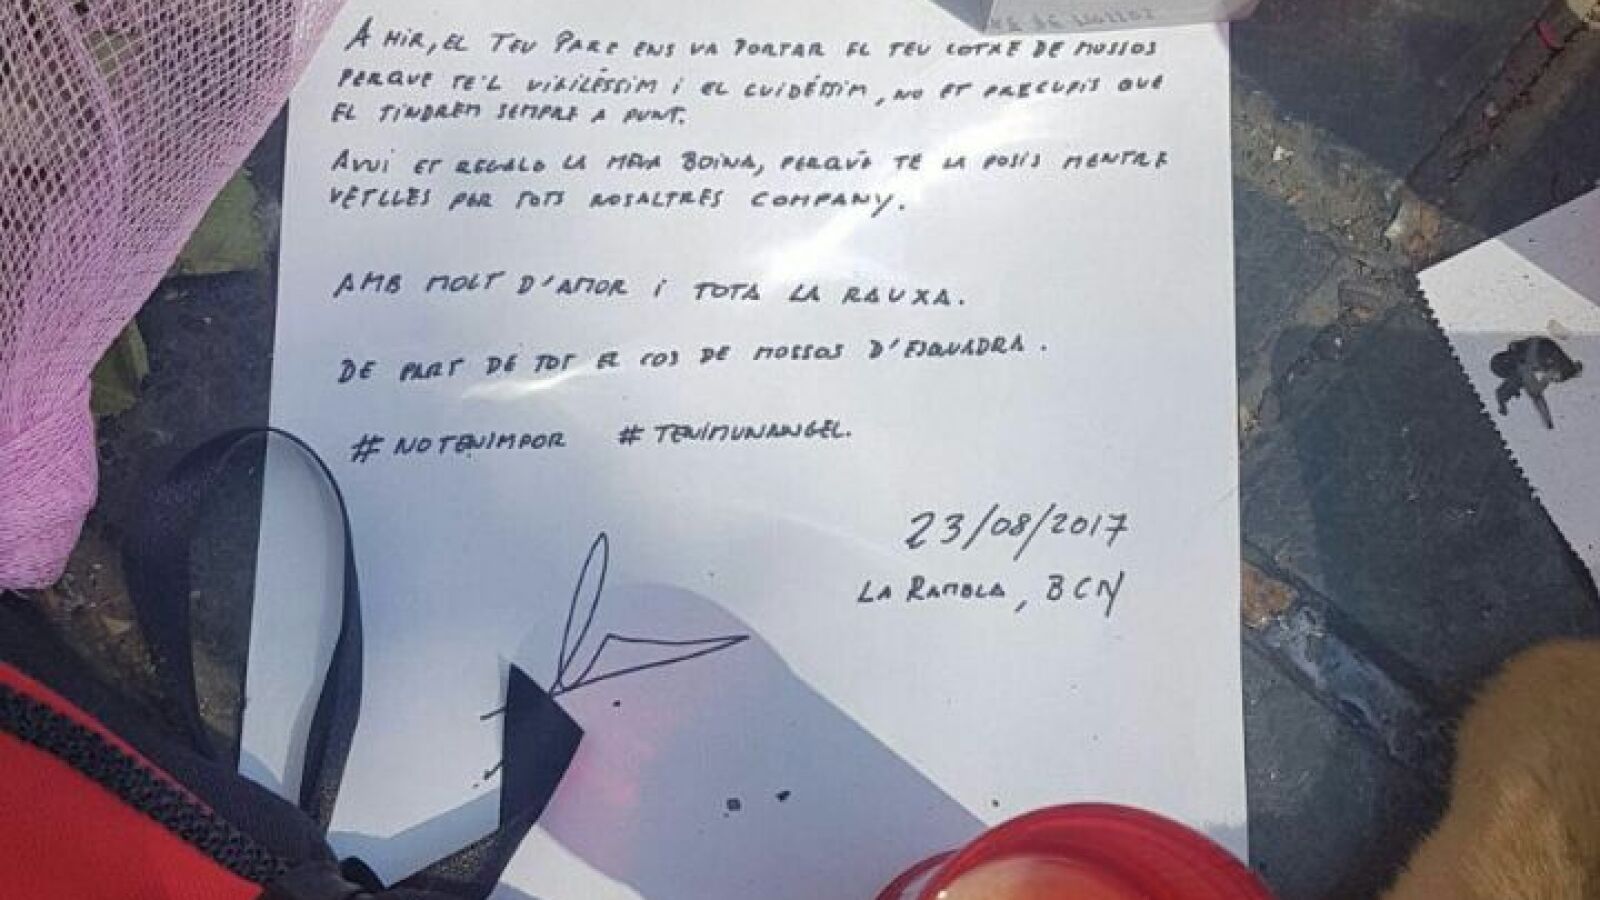 AHIR, EL TEU PARE ENS VA PORTAR EL TEU COTXE DE MOSSOS
PERQUE TE'L VIGILÉSSIM I EL CUIDÉSSIM, NO ET PRECUPIS QUE
EL TINDREM SEMPRE A PUNT.
AVUI ET REGALO LA MEVA BOINA, PERQUÈ TE LA POSIS MENTRE
VETLLES PER TOTS NOSALTRES COMPANY.
AMB MOLT D'AMOR i TOTA LA RAUXA.
DE PART DE TOT EL COS DE MOSSOS D'ESQUADRA.
#NOTENIMPOR #TENIMUNANGEL.
23/08/2017
LA RAMBLA, BCN